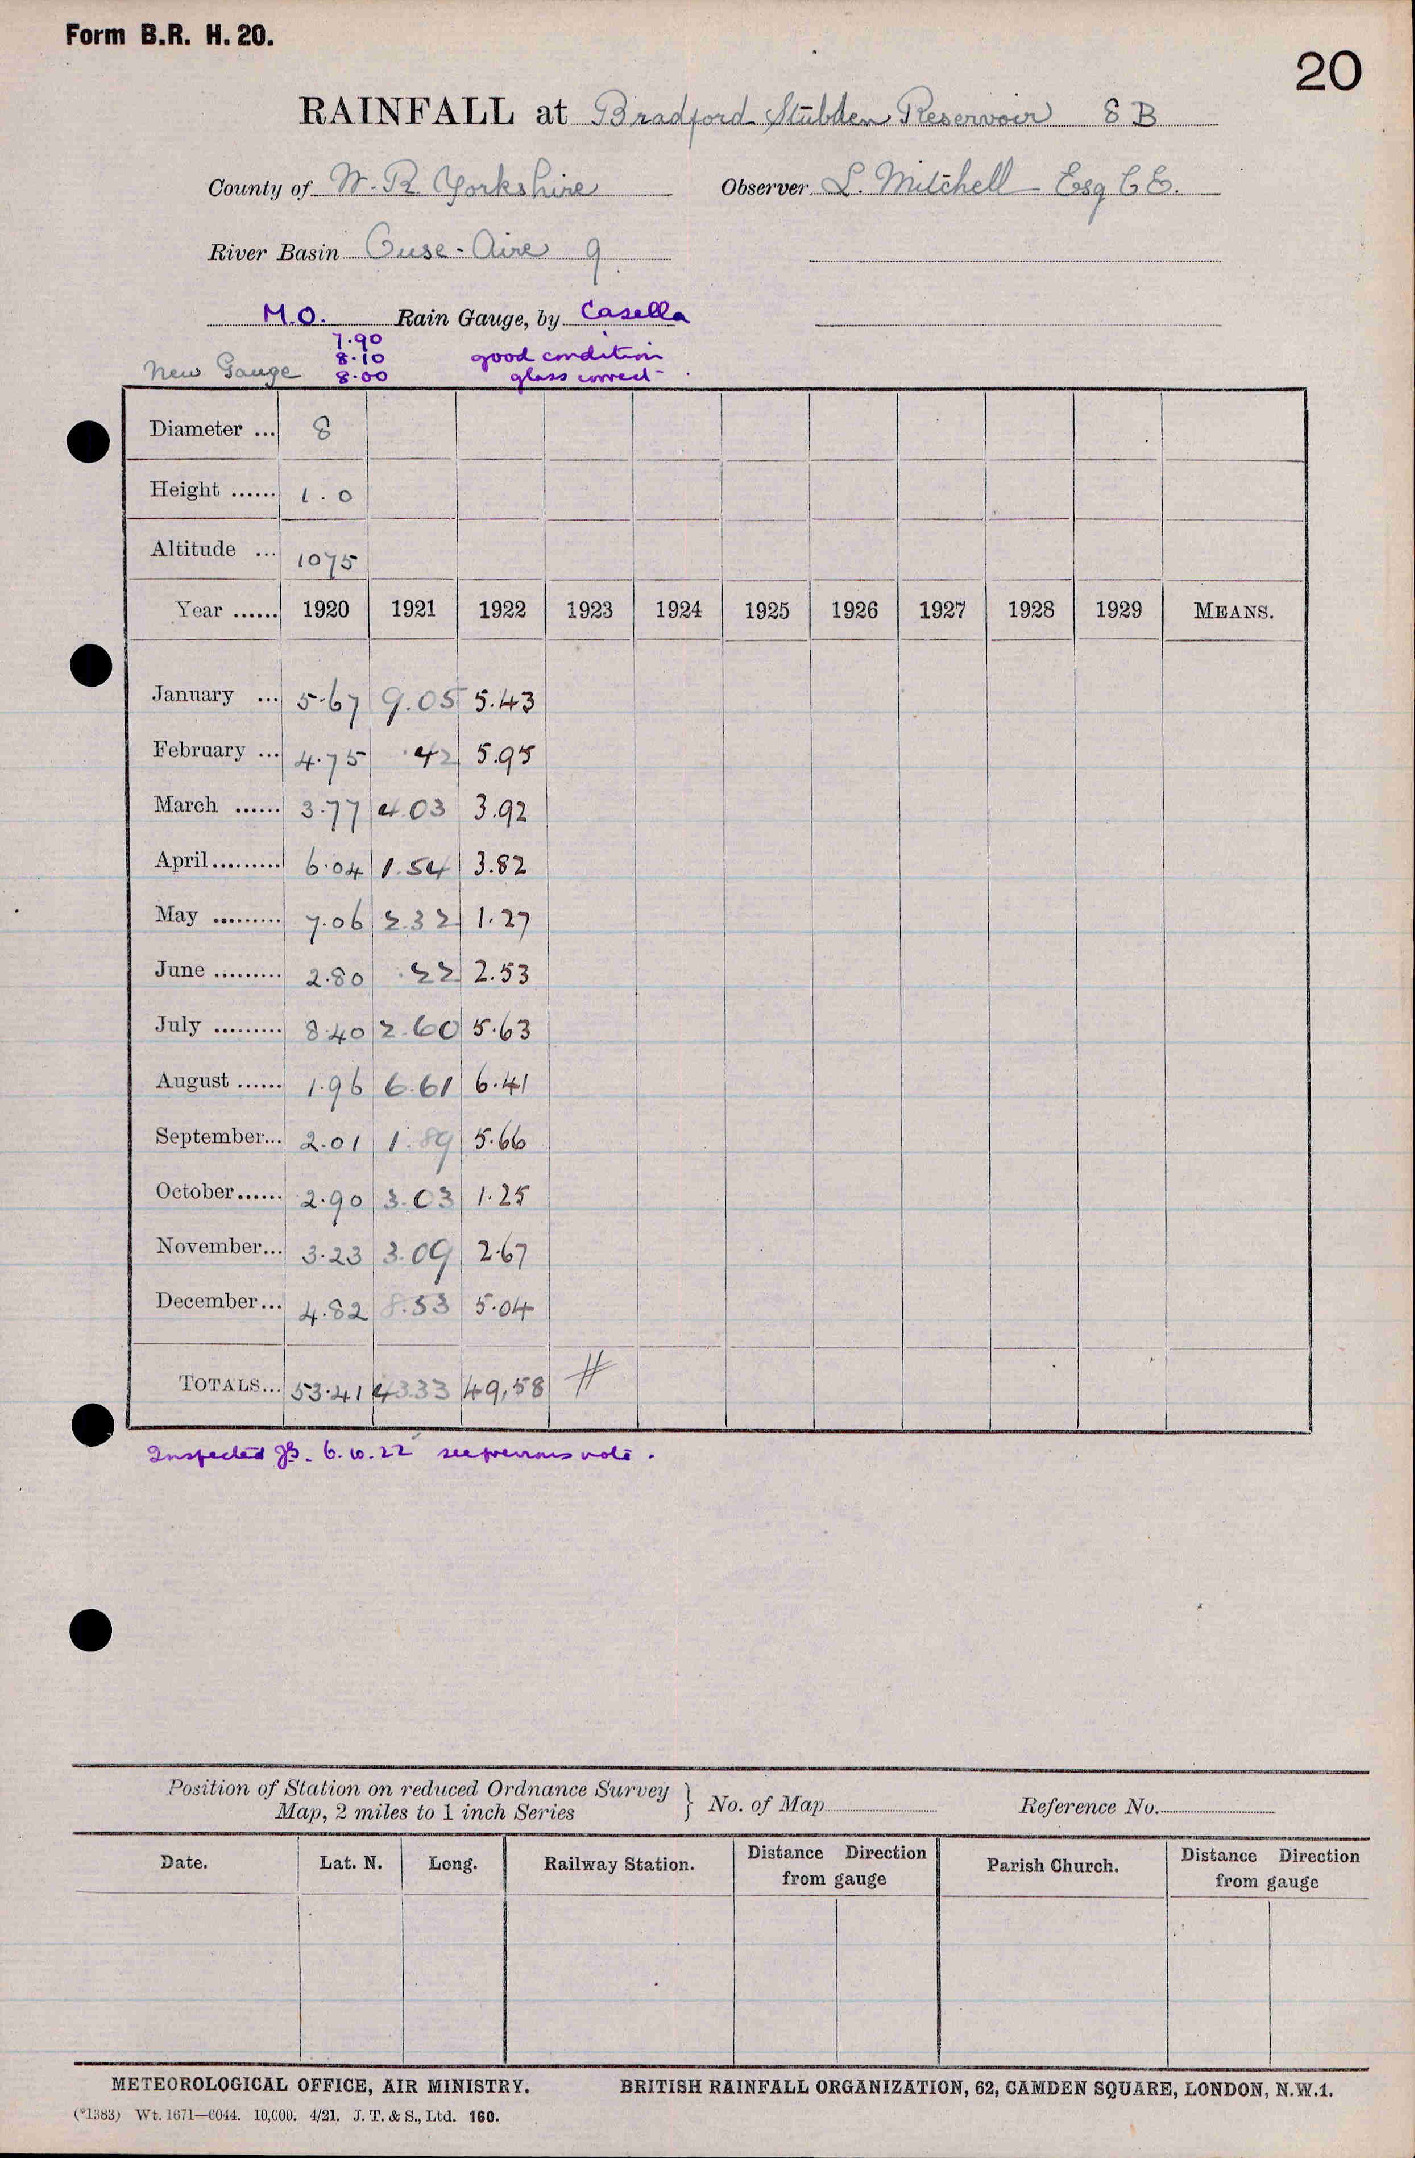 Form B.R. H. 20.
20
RAINFALL at Bradford Stubden Reservoir 8 B
County of W. R. Yorkshire Observer L. Mitchell Esq C E.
River Basin Ouse - Aire 9
M.O. Rain Gauge, by Casella
7.90
8.10 good condition
New Gauge 8.00 glass correct
Diameter ... 8
Height ...... 1.0
Altitude ... 1075
Year ...... 1920 1921 1922 1923 1924 1925 1926 1927 1928 1929 MEANS.
January ... 5.67 9.05 5.43
February ... 4.75 .42 5.95
March ...... 3.77 4.03 3.92
April ......... 6.04 1.54 3.82
May ......... 7.06 2.32 1.27
June ......... 2.80 .22 2.53
July ......... 8.40 2.60 5.63
August ...... 1.96 6.61 6.41
September... 2.01 1.89 5.66
October...... 2.90 3.03 1.25
November... 3.23 3.09 2.67
December... 4.82 8.53 5.04
TOTALS... 53.41 43.33 49,58 #
Inspected JB. 6.10.22 see previous note.
Position of Station on reduced Ordnance Survey
Map, 2 miles to 1 inch Series } No. of Map Reference No.
Date. Lat. N. Long. Railway Station. Distance Direction from gauge Parish Church. Distance Direction from gauge
METEOROLOGICAL OFFICE, AIR MINISTRY. BRITISH RAINFALL ORGANIZATION, 62, CAMDEN SQUARE, LONDON, N.W.1.
(*1383) Wt. 1671—6044. 10,000. 4/21. J. T. & S., Ltd. 160.